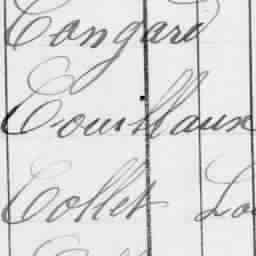 Congard
Couillaux
Collet Lou